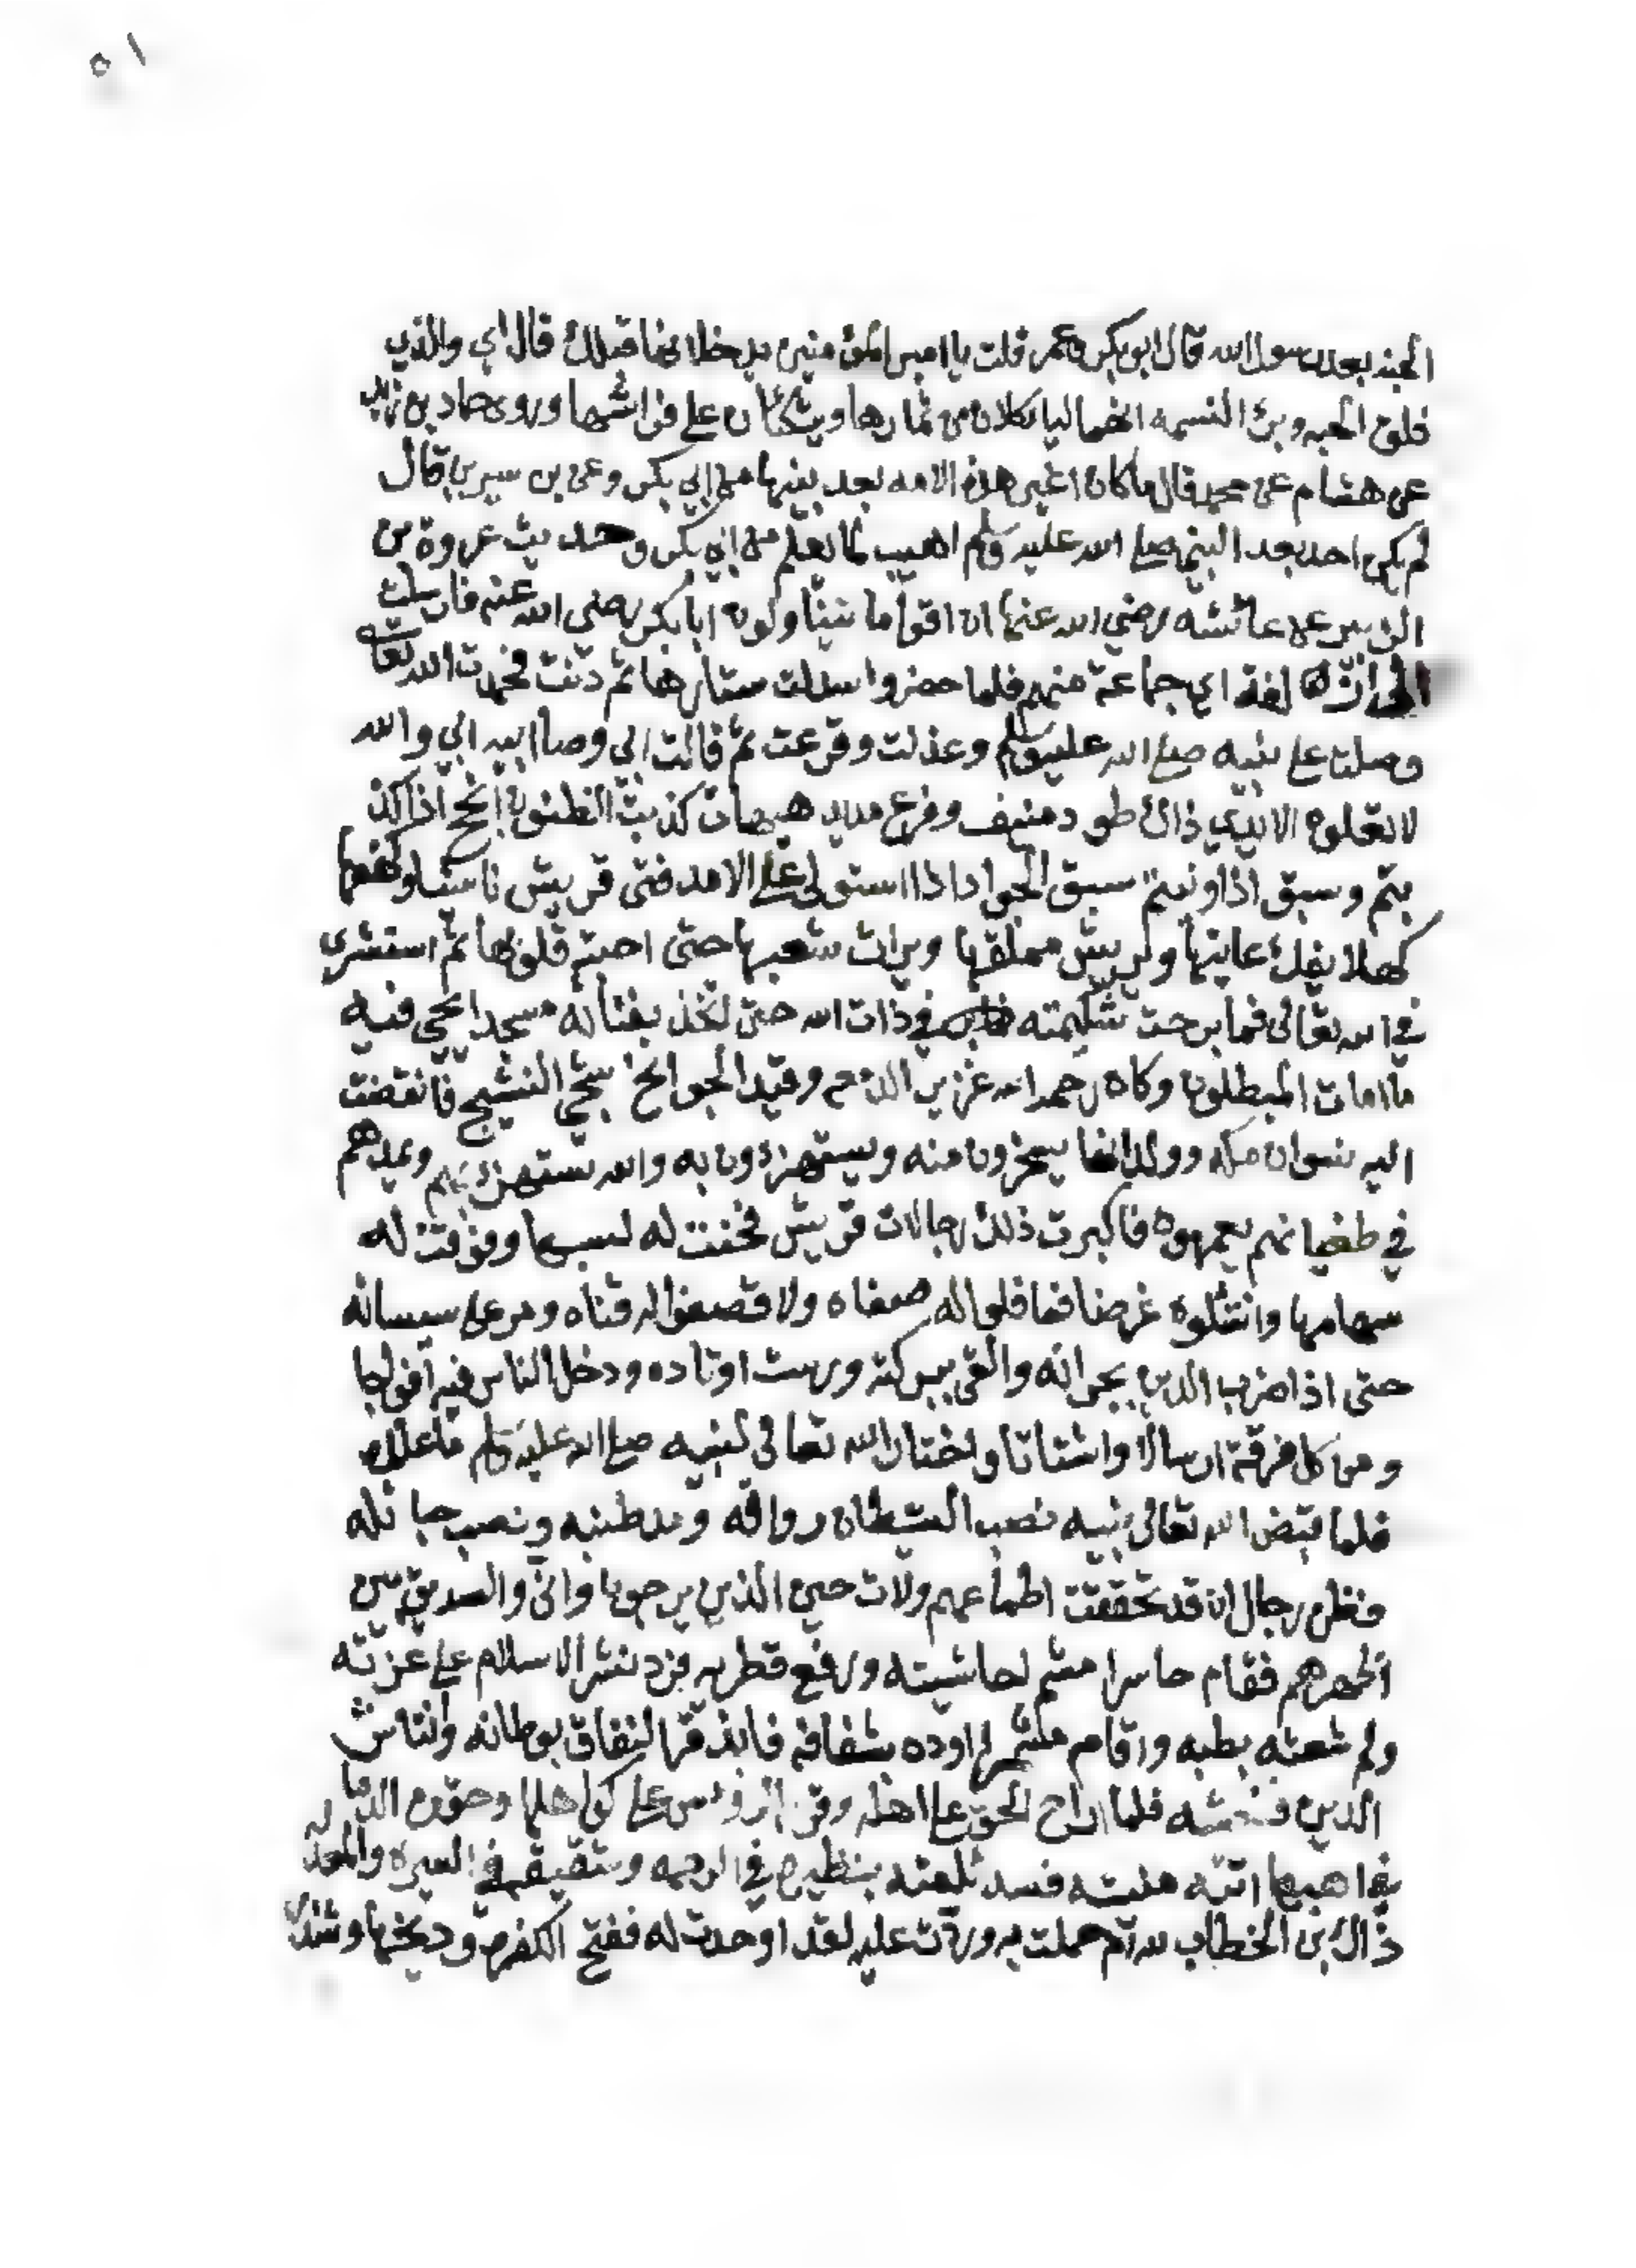 ٥١
الجنة بعد رسول الله قال ابو بكر وعمر قلت يا امير المؤمنين يدخلانها قبلك قال اي والذي
فلق الحبه وبرئ النسمه انهما لياكلان من ثمارها ويتكئان على فراشها وروى حماد بن زيد
عن هشام عن محمد قال ما كان اغير هذه الامه بعد نبيها من ابي بكر وعن بن سيرين قال
لم يكن احد بعد النبي صلى الله عليه وسلم اهيب لما يعلم من ابي بكر وحديث عروة بن
الزبير عن عائشه رضي الله عنها ان اقواما يتناولون ابا بكر رضى الله عنه فارسلت
الى ازفله لغة اي جماعة منهم فلما حضروا اسدلت ستارها ثم دنت فحمدت الله تعالى
وصلت على نبيه صلى الله عليه وسلم وعذلت وقرعت ثم قالت ابي وما ابيه ابي والله
لا تعطوه الايدي ذاك طود منيف وفرع مديد هيهات كذبت الظنون انجح اذا اكد
يتم وسبق اذ اونيتم سبق الجواد اذا استولى على الامد فتى قريش ناشئا وكهفها
كهلا يفك عانيها ويريش مملقها ويراب شعبها حتى احبته قلوبها ثم استشرى
في الله تعالى فما برحت شكيمته في ذات الله حتى اتخذ بفنائه مسجدا يحيى فيه
ما امات المبطلون وكان رحمه الله غزير الدمع وقيد الجوانح شجي النشيج فانقضت
اليه نسوان مكه وولدانها يسخرون منه ويستهزؤن به والله يستهزئ بهم ويمدهم
في طغيانهم يعمهون فاكبرت ذلك رجالات قريش فحنت له قسيها وفوقت له
سهامها وانتثلوه غرضا فما فلوا له صفاه ولا قصفوا له قناه ومر على سيسائه
حتى اذا ضرب الدين بجرانه والقى بركته ورست اوتاده ودخل الناس فيه افواجا
ومن كل فرقة ارسالا واشتاتا واختار الله تعالى لنبيه صلى الله عليه وسلم ما عنده
فلما قبض الله تعالى نبيه نصب الشيطان رواقه ومد طنبه ونصب حبائله
فظن رجال ان قد تحققت اطماعهم ولات حين الذين يرجون وانى والصديق بين
اظهرهم فقام حاسرا مشمرا حاشيته ورفع قطريه فرد نشر الاسلام على غرته
ولم شعثه بطبه واقام اوده بثقافه فابذقر النفاق بوطاته وانتاش
الدين فنعشه فلما اراح الحق على اهله وقرر الرؤس على كواهلها وحقن الدما
في اهبها اتته منيته فسد ثلمته بنظيره في الرحمه وشقيقه في السيره والمعدله
ذاك بن الخطاب لله ام حملت به ودرت عليه لقد اوحدت له ففتح الكفره وديخها وشرد